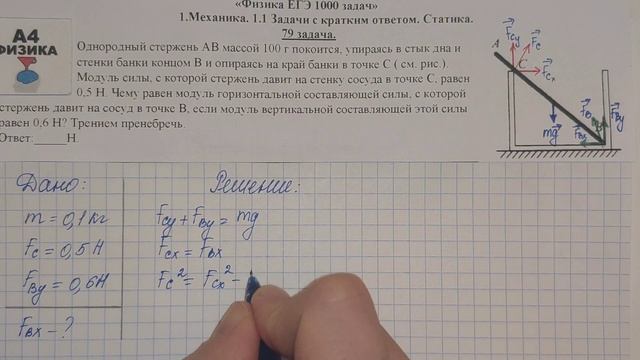 «Физика ЕГЭ 1000 задач»
1.Механика. 1.1 Задачи с кратким ответом. Статика.
79 задача.
А4
ФИЗИКА
Однородный стержень АВ массой 100 г покоится, упираясь в стык дна и
стенки банки концом В и опираясь на край банки в точке С ( см. рис.).
Модуль силы, с которой стержень давит на стенку сосуда в точке С, равен
0,5 Н. Чему равен модуль горизонтальной составляющей силы, с которой
стержень давит на сосуд в точке В, если модуль вертикальной составляющей этой силы
равен 0,6 Н? Трением пренебречь.
Ответ:_____Н.
A
Fcy
Fc
C
Fcx
mg
FB
FBy
FBx
Дано:
m = 0,1 кг
Fc = 0,5 Н
FBy = 0,6 Н
FBx - ?
Решение:
Fcy + FBy = mg
Fcx = FBx
Fc² = Fcx² -